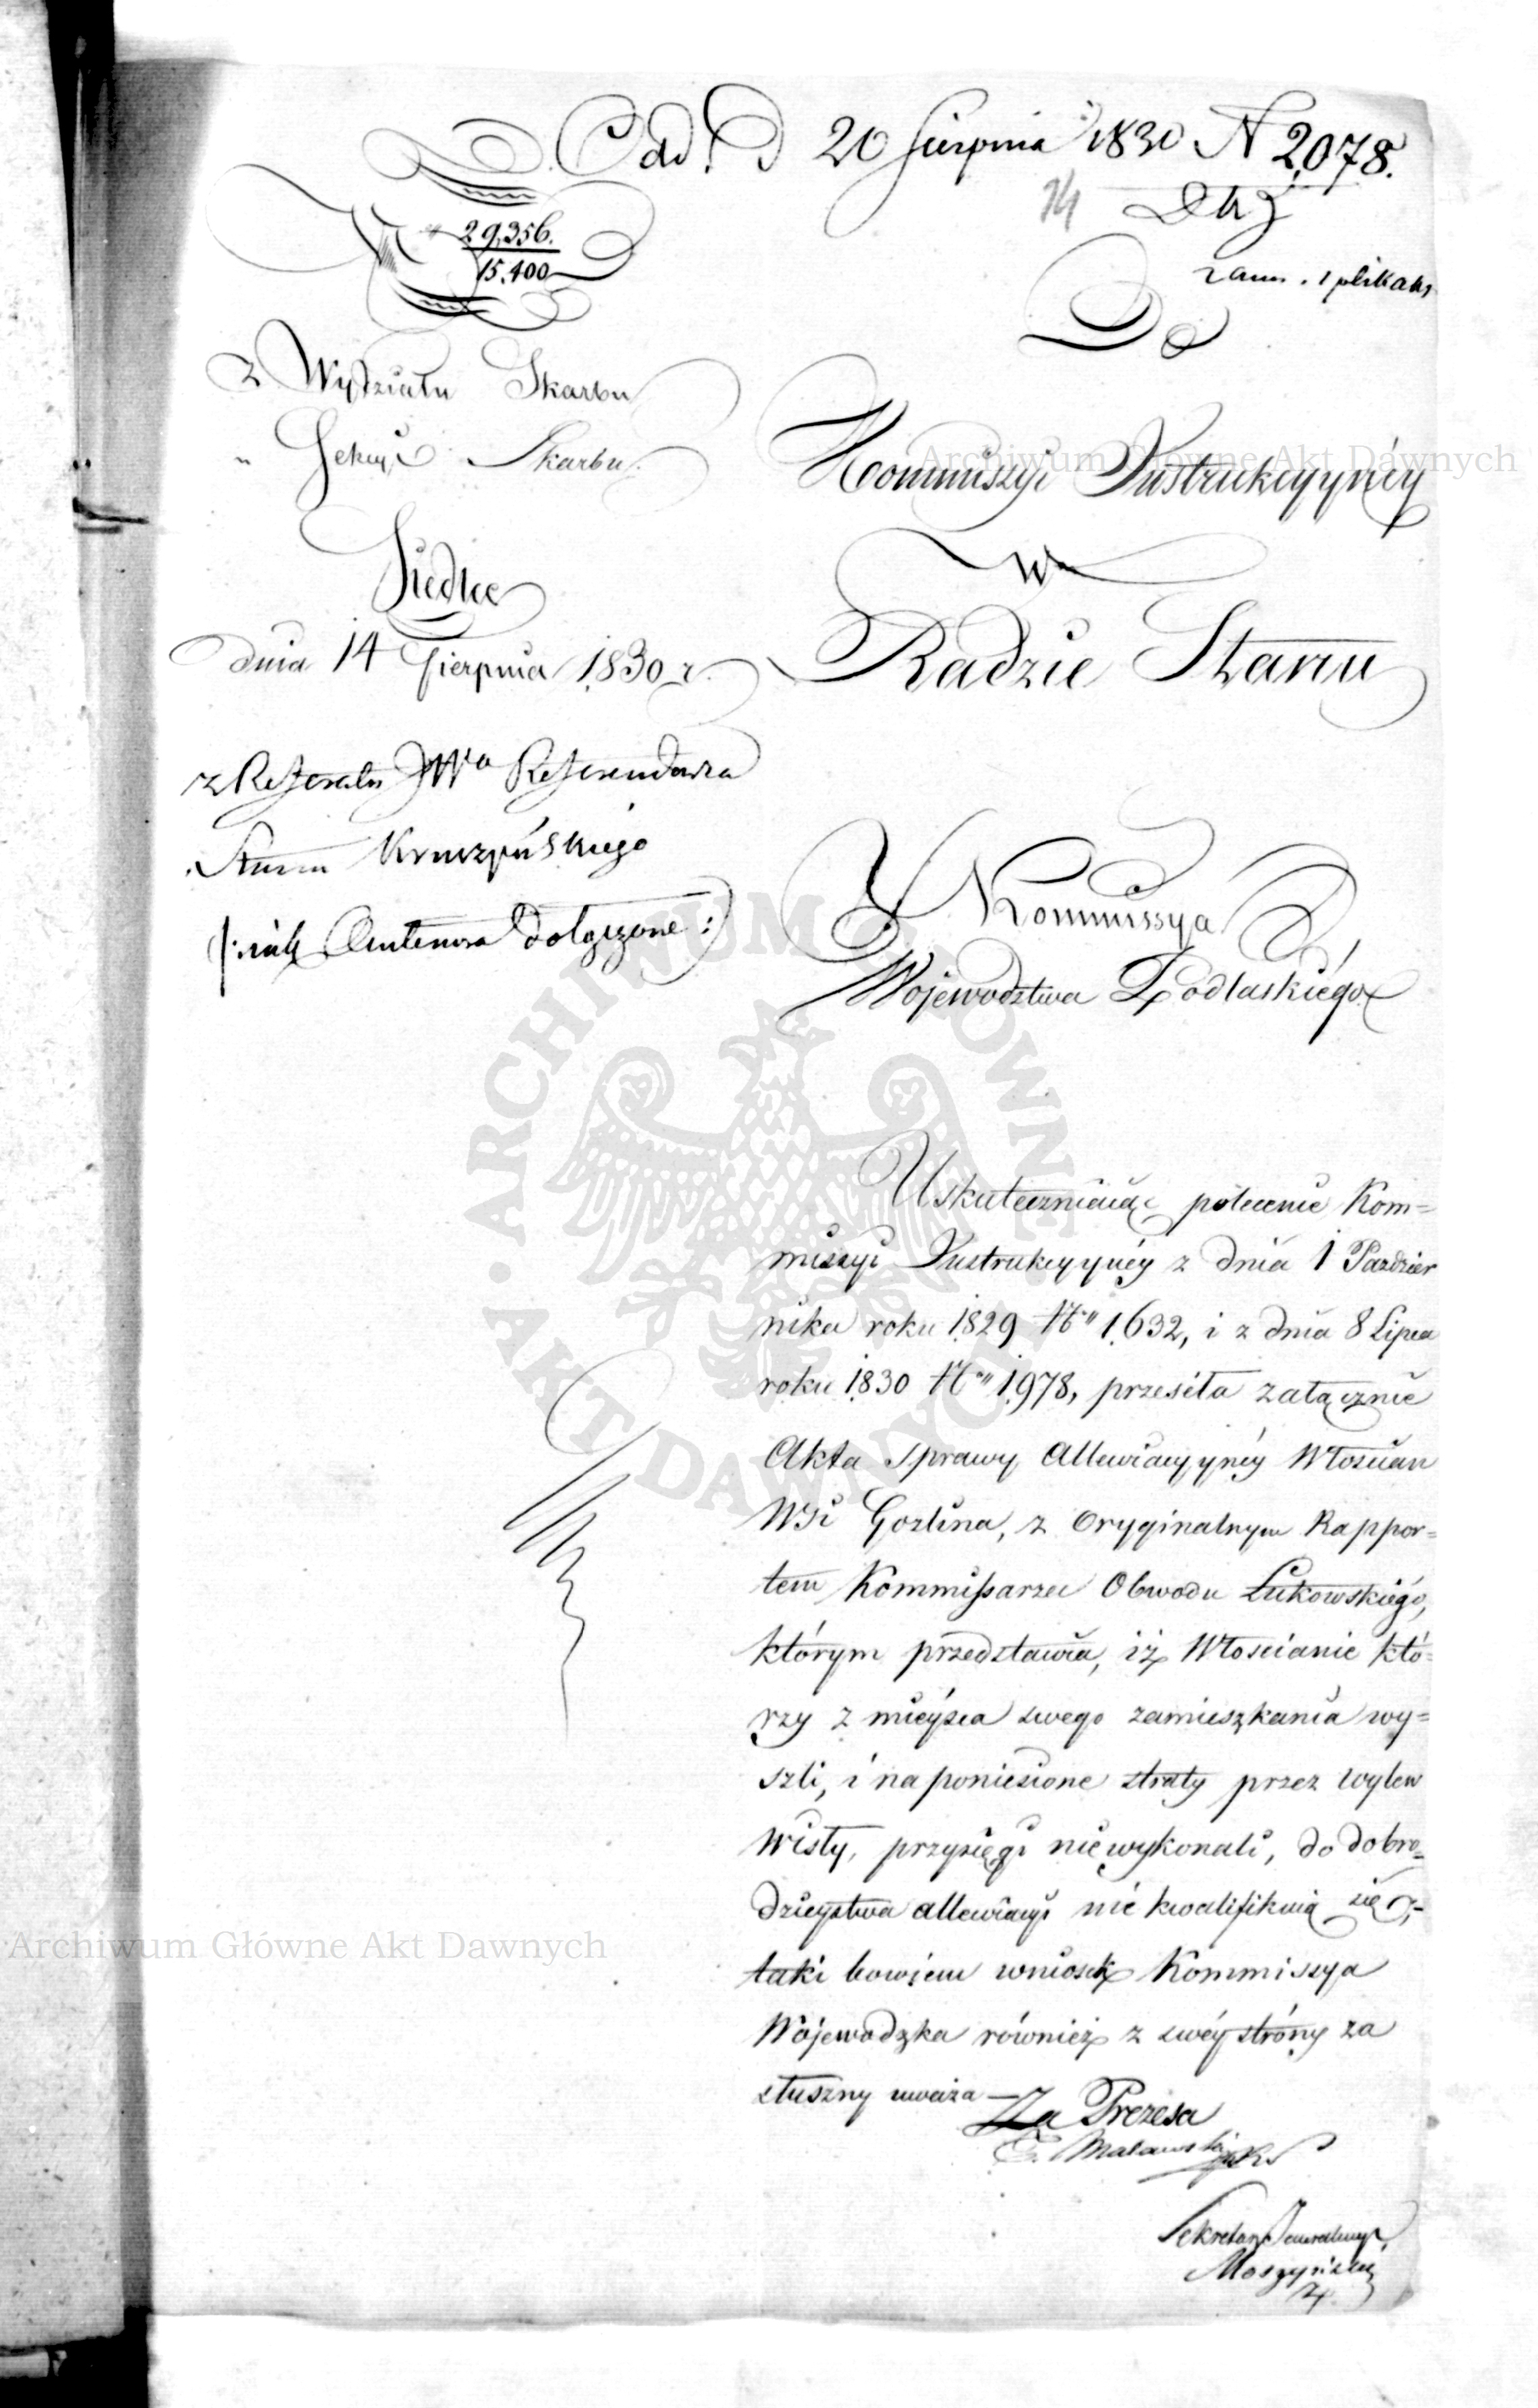 Odd. D 20 Sierpnia 1830 N 2,078.
14
z ann. 1 plik akt
29,356.
15,400
Z Wydziału Skarbu
" Sekcyi Skarbu.
Siedlce
dnia 14 Sierpnia 1830 r.
Do
Kommissyi Instrukcyyney
w
Radzie Stanu
z Referatu JWo Referendarza
Stanu
dołączone :/
Kommissya
Województwa Podlaskiégo
Uskuteczniaiąc polecenie Kom=
missyi Instrukcyynéy z dnia 1 Pazdzier
nika roku 1829 No 1,632, i z dnia 8 Lipca
roku 1830 No 1,978, przesiła załącznie
Akta sprawy Allewiacyynéy Włoscian
Wsi Gozlina, z Oryginalnym Rappor=
tem Kommissarza Obwodu Łukowskiégo,
którym przedstawia, iż Włoscianie któ=
rzy z mieysca swego zamieszkania wy=
szli, i na poniesione straty przez wylew
Wisły, przysięgi nie wykonali, do dobro=
dzieystwa allewiacyi nie kwalifikuią się,-
taki bowiem wniosek Kommissya
Wojewodzka również z swéy strony za
słuszny uważa —
Za Prezesa
Sekretarz Jeneralny
Archiwum Główne Akt Dawnych
Archiwum Główne Akt Dawnych
ARCHIWUM GŁÓWNE AKT DAWNYCH